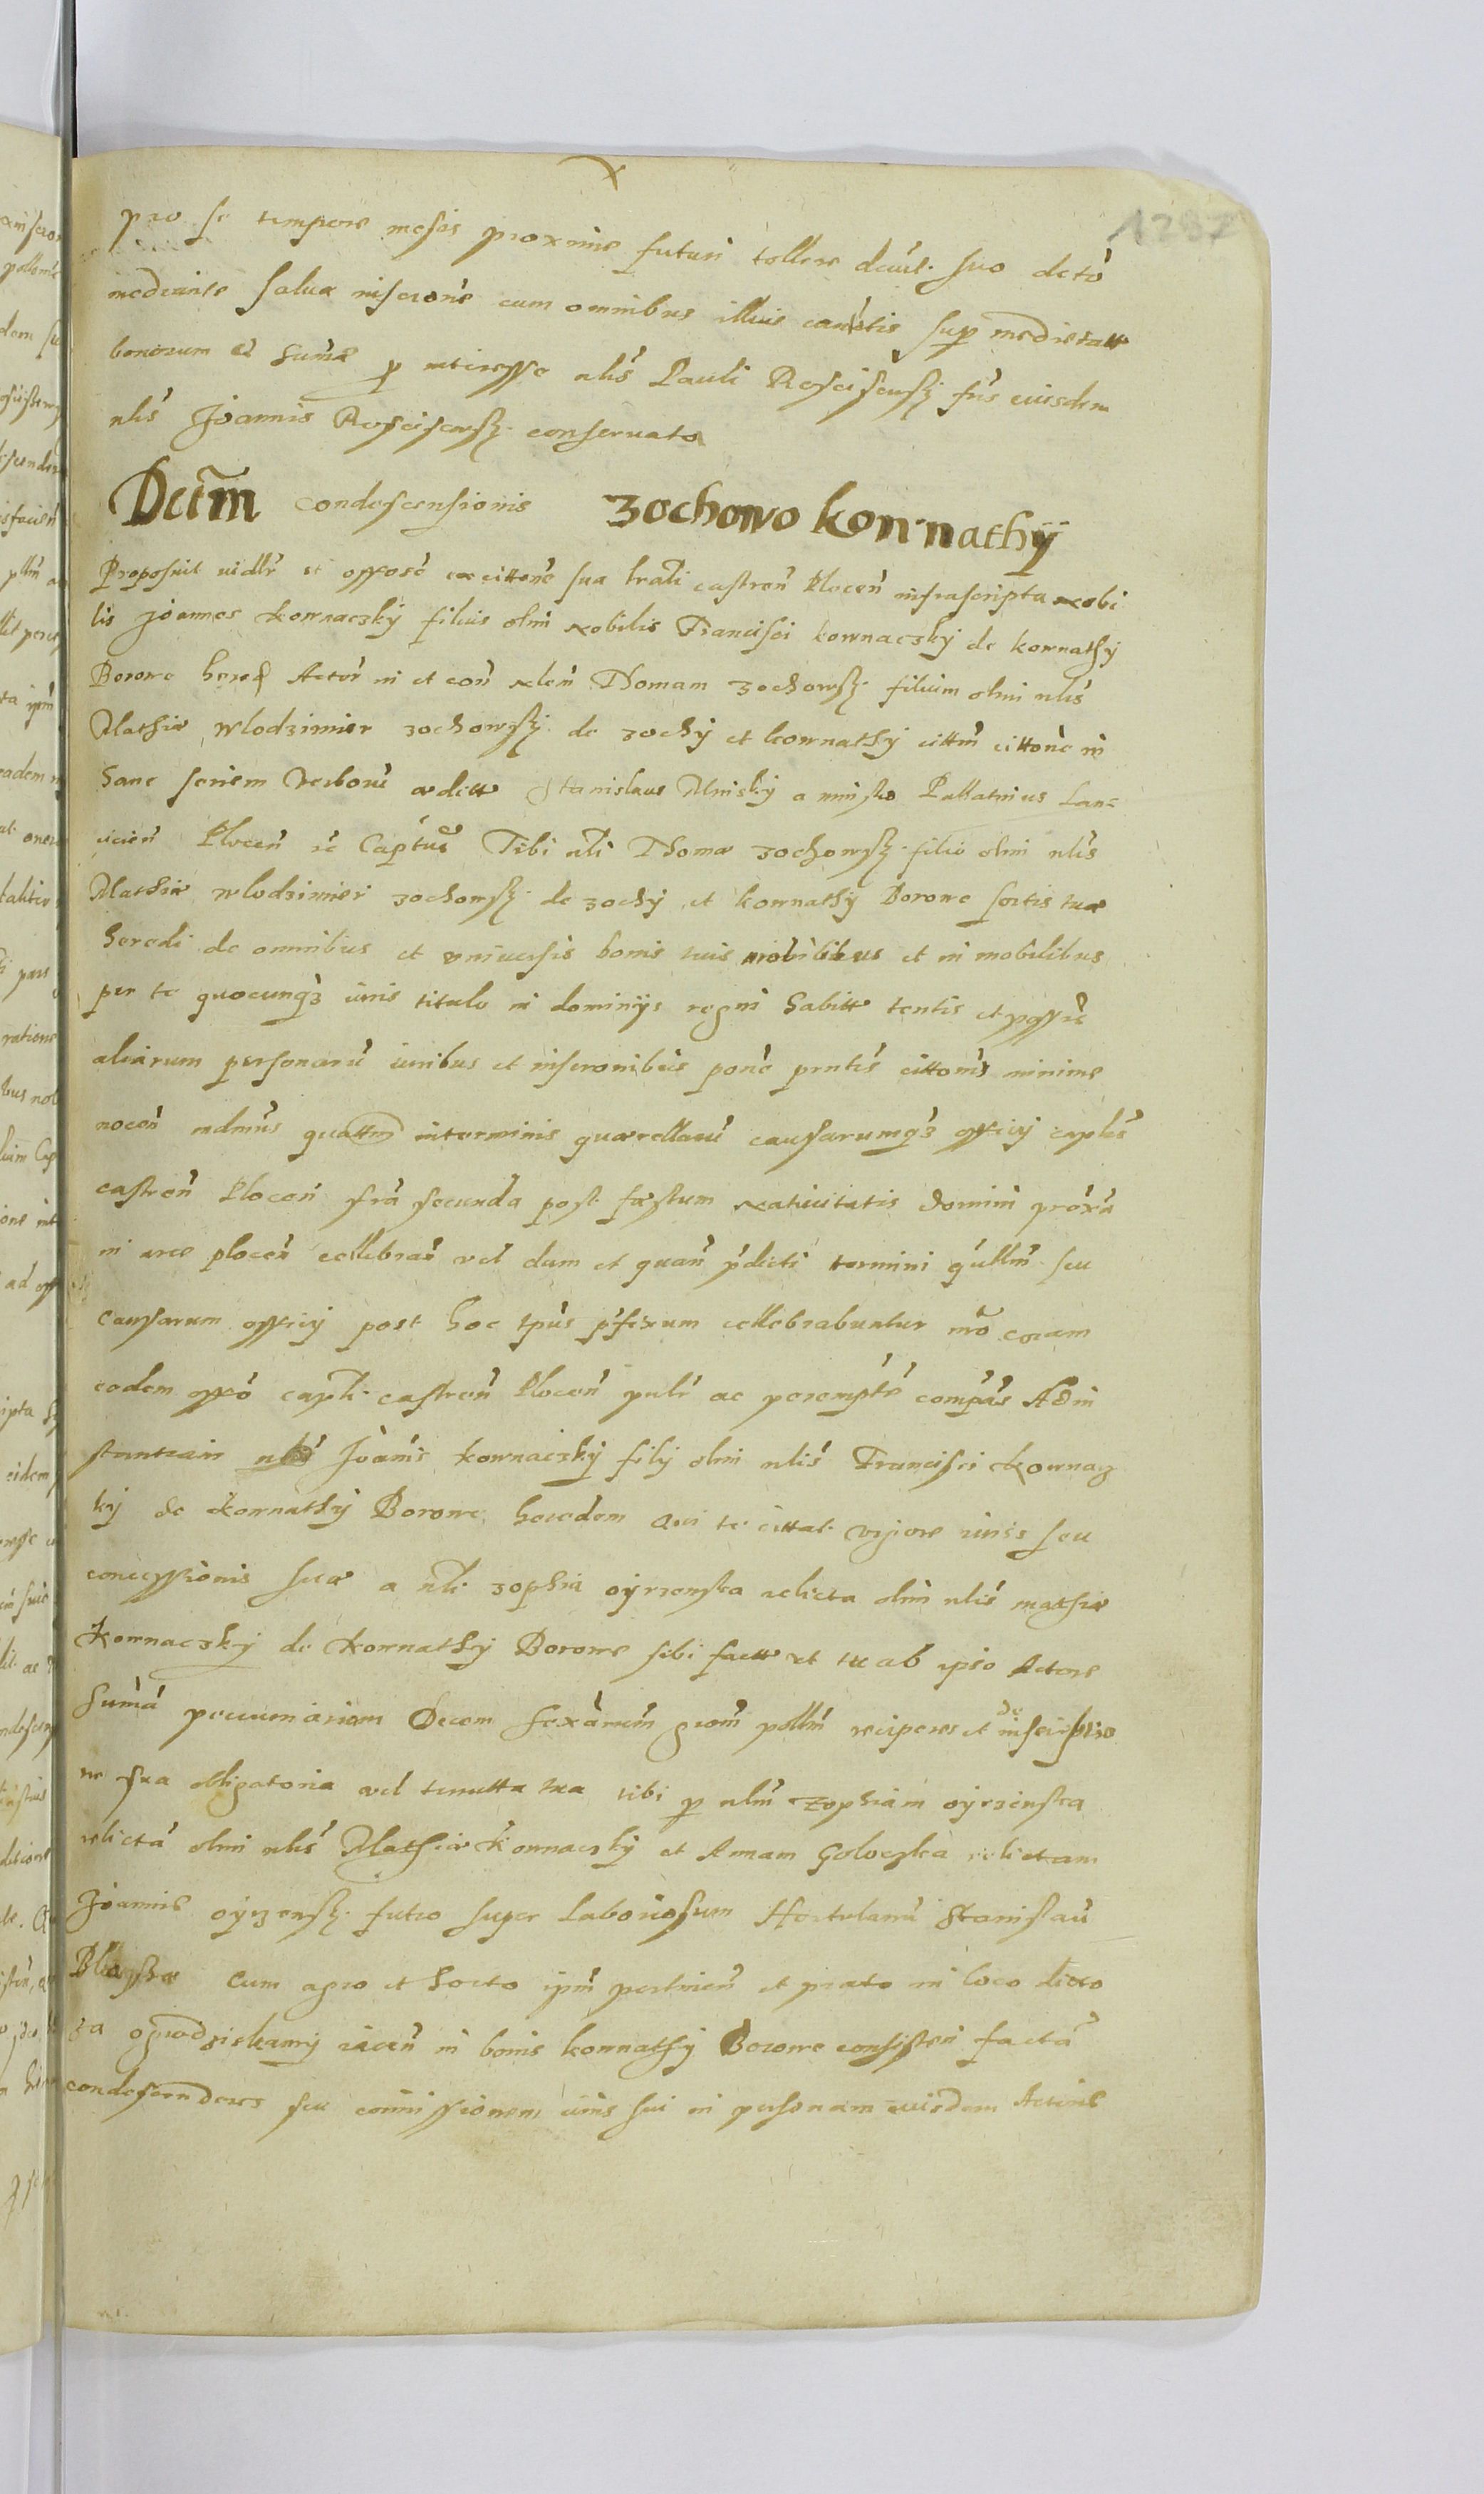 1287
pro se tempore messis proxime futuri tollere debuit suo deto
mediante salva inscrone cum omnibus illius cautelis sup medietatte
bonorum et sume p interesse nlis Pauli Rosciseusky fris eiusdem
nlis Joannis Rosciseusky conservata
Dctm condescensionis Zochowo kownathÿ
Proposuit vidlr et opposc ex cittone sua lrali castren Plocen infrascripta nobi
lis Joannes kownaczkÿ filius olm nobilis Francisci kownaczkÿ de kownathÿ
Borowe hered Actor in et con nlem Thomam zochowsky filium olim nlis
Mathiæ wlodzimier zochowsky de zochÿ et kownathÿ cittm cittone in
hanc seriem verborum æditt Stanislaus Minskÿ a minsko Pallatinus Lan=
cicien Plocen zc Captus Tibi nli Thomæ zochowsky filio olim nlis
Mathiæ wlodzimieri zochowsky de zochÿ et kownathÿ Borowe sortis tuæ
heredi de omnibus et vniversis bonis tuis mobilibus et in mobilibus
per te quocunqz iuris titulo in dominijs regni habitt tentis et possis
aliarum personaru iuribus et inscronibus pone prntis cittonis minime
nocen mdmus quattm in terminis quærellaru causarumqz officij caplis
castren Plocen fria secunda post fæstum nativitatis domini proxa
in arce plocen cellebran vel dum et quan pdicti termini qullm seu
causarum officij post hoc tpus pfixum cellebrabuntur nro coram
eodem offo capli castren Plocen pulr ac perempte compas Ad in
stantiam nlis Joanis kownaczkÿ filij olim nlis Francisci kownacz
kÿ de kownathÿ Borowe heredem Qui te cittat vigore iuris seu
concessionis suæ a nli zophia oÿrzenska relicta olim nlis mathiæ
kownaczkÿ de kownathÿ Borowe sibi factæ vt tu ab ipso Actore
sumā pecuniariam Decem sexarum grom pollm reciperes et de inscriptio
ne sua obligatoria vel tenutta tua tibi p nlm zophiam oÿrzenska
relictā olim nlis Mathiæ kownaczkÿ et Annam Goloczka relictam
Joannis oÿrzensky super Laboriosum Hortulanū Stanislaū
cum agro et horto ipm pertinen et prato in loco dicto
za ogrodziskamÿ iacen in bonis kownathÿ Borowe consisten factā
condescenderes seu comissionem iuris sui in personam eiusdem Actoris